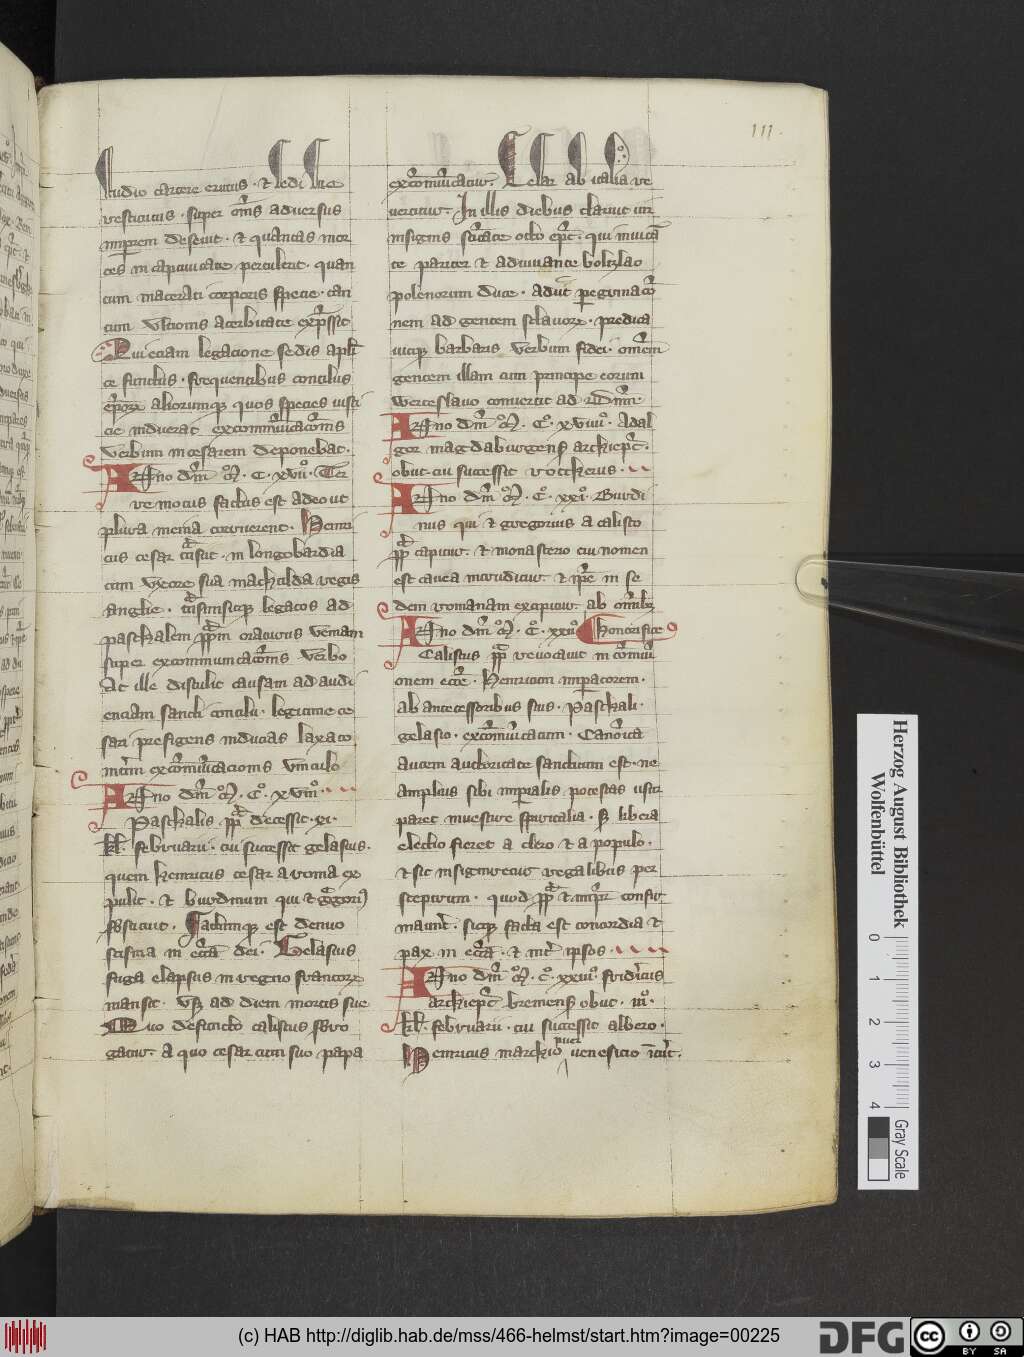 111.
studio carcere erutus · et sedi sue
restitutus · super om̅s adversus
imp̅rem deseuit · et quantas mor
tes in captiuitate pertulerit · quan
tum macerati corporis specie · tan
tum ultionis acerbitate exp̅ssit
Qui etiam legatione sedis ap̅li
ce functus · frequentibus conciliis
ep̅orum aliorumque quos species iusti
cie induerat excom̅u̅icat̅o̅nis
verbum in cesarem deponebat ·
Anno dn̅i · M̊ · C · xvii̊ · Ter
re motus factus est adeo ut
plura menia corruerent · Henri
cus cesar t̅nsiit · in longobardia
cum uxore sua machtilda regis
anglie · t̅nsmisitque legatos ad
paschalem pp̅m oraturus veniam
super excommunicat̅o̅nis verbo
At ille distulit causam ad audi
entiam sancti concilii · legitime ce
sari prefigens inducias laxato
int̅im exco̅m̅u̅icacionis vinculo
Anno dn̅i · M̊ · C̊ · xviii̊ ·
Paschalis pp̅ decessit · xi ·
kl̅ · februarii · cui successit gelasius ·
quem henricus cesar a roma ex
pulit · et burdinum qui et g̅gori9
s̅bstituit · Factumque est denuo
scisma in ec̅c̅a dei · Gelasius
fuga elapsus in regno francorum
mansit · usque ad diem mortis sue
Quo defuncto calistus s̅bro
gatur · a quo cesar cum suo papa
exco̅m̅u̅icatur · Cesar ab italia re
uertitur · In illis diebus claruit uir
insignis sc̅i̅tate otto ep̅c · qui inuita̅
te pariter et adiuuante bolizlao
polenorum duce · adu̅t peg̅rinac̅o̅
nem ad gentem sclauorum · predica
uitque barbaris verbum fidei · om̅em
gentem illam cum principe eorum
Werteslauo conuertit ad d̅n̅m ·
Anno dn̅i · M̊ · C̊ · xviiii̊ · Adal
gor magdaburgens archiep̅c ·
obiit cui successit rotkerus ·
Anno dn̅i · M̊ · C̊ · xxi̊ · Burdi
nus qui et gregorius a calisto
pp̅ capitur · et monasterio cui nomen
est cauea intruditur et ip̅e in se
dem romanam excipitur ab om̅ibus
Anno dn̅i · M̊ · C̊ · xxii̊ honorifice
Calistus pp̅ reuocauit in co̅m̅uni
onem ecc̅e · henricum imp̅atorem ·
ab antecessoribus suis · Paschali ·
gelasio · exco̅m̅u̅icatum · Cano̅ica
autem auctoritate sanctitum est · ne
amplius sibi imp̅ialis potestas usur
paret inuesture sp̅iritalia · S̅ libera
electio fieret a clero et a populo ·
et sic insigniretur regalibus per
sceptrum · quod pp̅ et imp̅r confir
maunt̅ · sicque facta est concordia et
pax in ec̅c̅a · et int̅ ipsos ·
Anno dn̅i · M̊ · C̊ · xxiii̊ · frid̅icus
archiep̅c bremens obiit · iii̊ ·
kl̅ · februarii · cui successit albero ·
Henricus marchio puer ueneficio
Herzog August Bibliothek
Wolfenbüttel
0 1 2 3 4
Gray Scale
(c) HAB http://diglib.hab.de/mss/466-helmst/start.htm?image=00225
DFG
cc BY SA